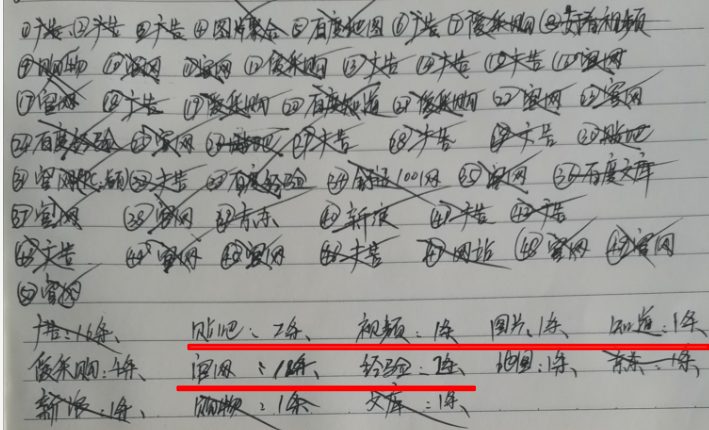 ①广告 ②广告 ③广告 ④图片聚合 ⑤百度地图 ⑥广告 ⑦爱采购 ⑧好看视频
⑨购物 ⑩官网 ⑪官网 ⑫爱采购 ⑬广告 ⑭广告 ⑮广告 ⑯官网
⑰官网 ⑱广告 ⑲爱采购 ⑳百度知道 ㉑爱采购 ㉒官网 ㉓官网
㉔百度经验 ㉕官网 ㉖贴吧 ㉗广告 ㉘广告 ㉙广告 ㉚贴吧
㉛官网 ㉜广告 ㉝百度经验 ㉞1001网 ㉟官网 ㊱百度文库
㊲官网 ㊳官网 ㊴京东 ㊵新浪 ㊶广告 ㊷广告
㊸广告 ㊹官网 ㊺官网 ㊻广告 ㊼网站 ㊽官网 ㊾官网
㊿官网
广告：16条、 贴吧：2条、 视频：1条 图片：1条、 知道：1条、
爱采购：4条、 官网：18条、 经验：2条、 地图：1条、 京东：1条、
新浪：1条、 购物：1条、 文库：1条、